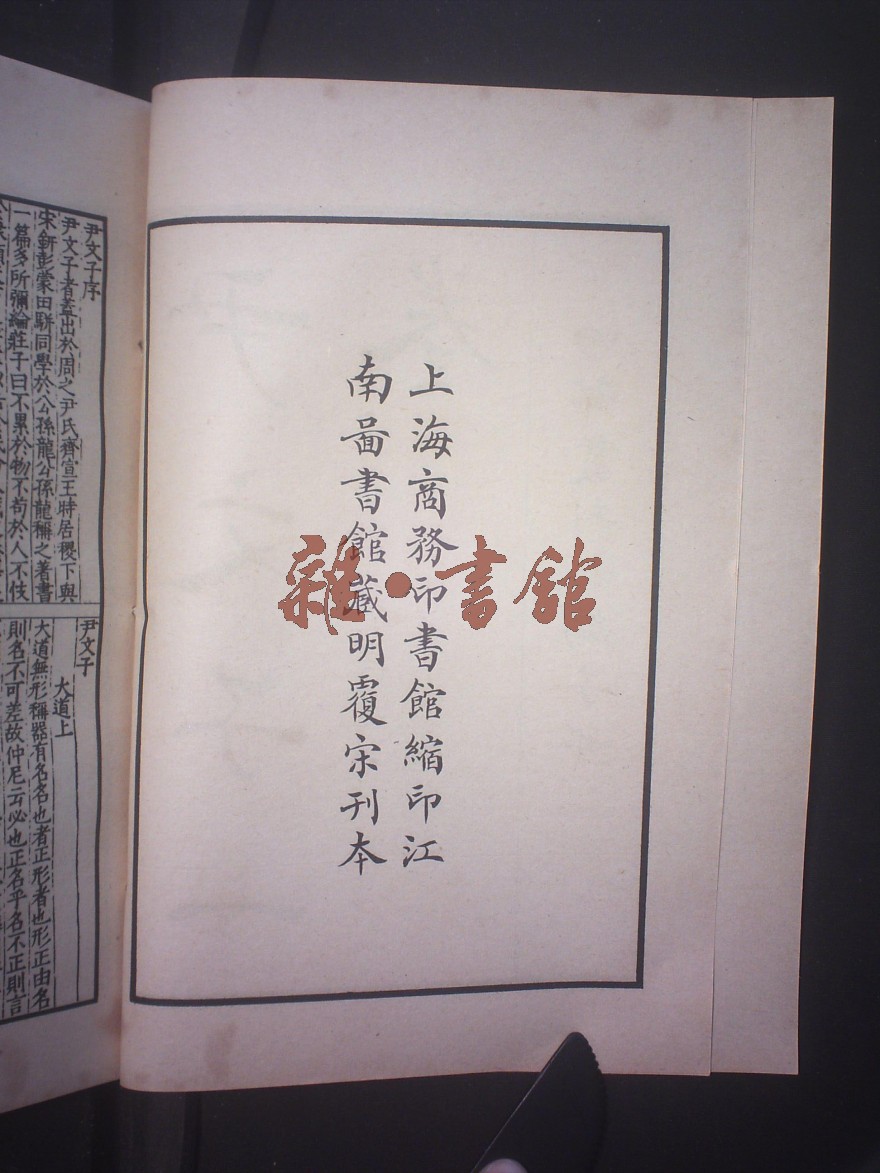 上海商務印書館縮印江
南啚書館藏明覆宋刊本
雜·書館
尹文子序
尹文子者蓋出於周之尹氏齊宣王時居稷下與
宋鈃彭蒙田駢同學於公孫龍公孫龍稱之著書
一篇多所彌綸莊子曰不累於物不苟於人不忮
尹文子
大道上
大道無形稱器有名名也者正形者也形正由名
則名不可差故仲尼云必也正名乎名不正則言